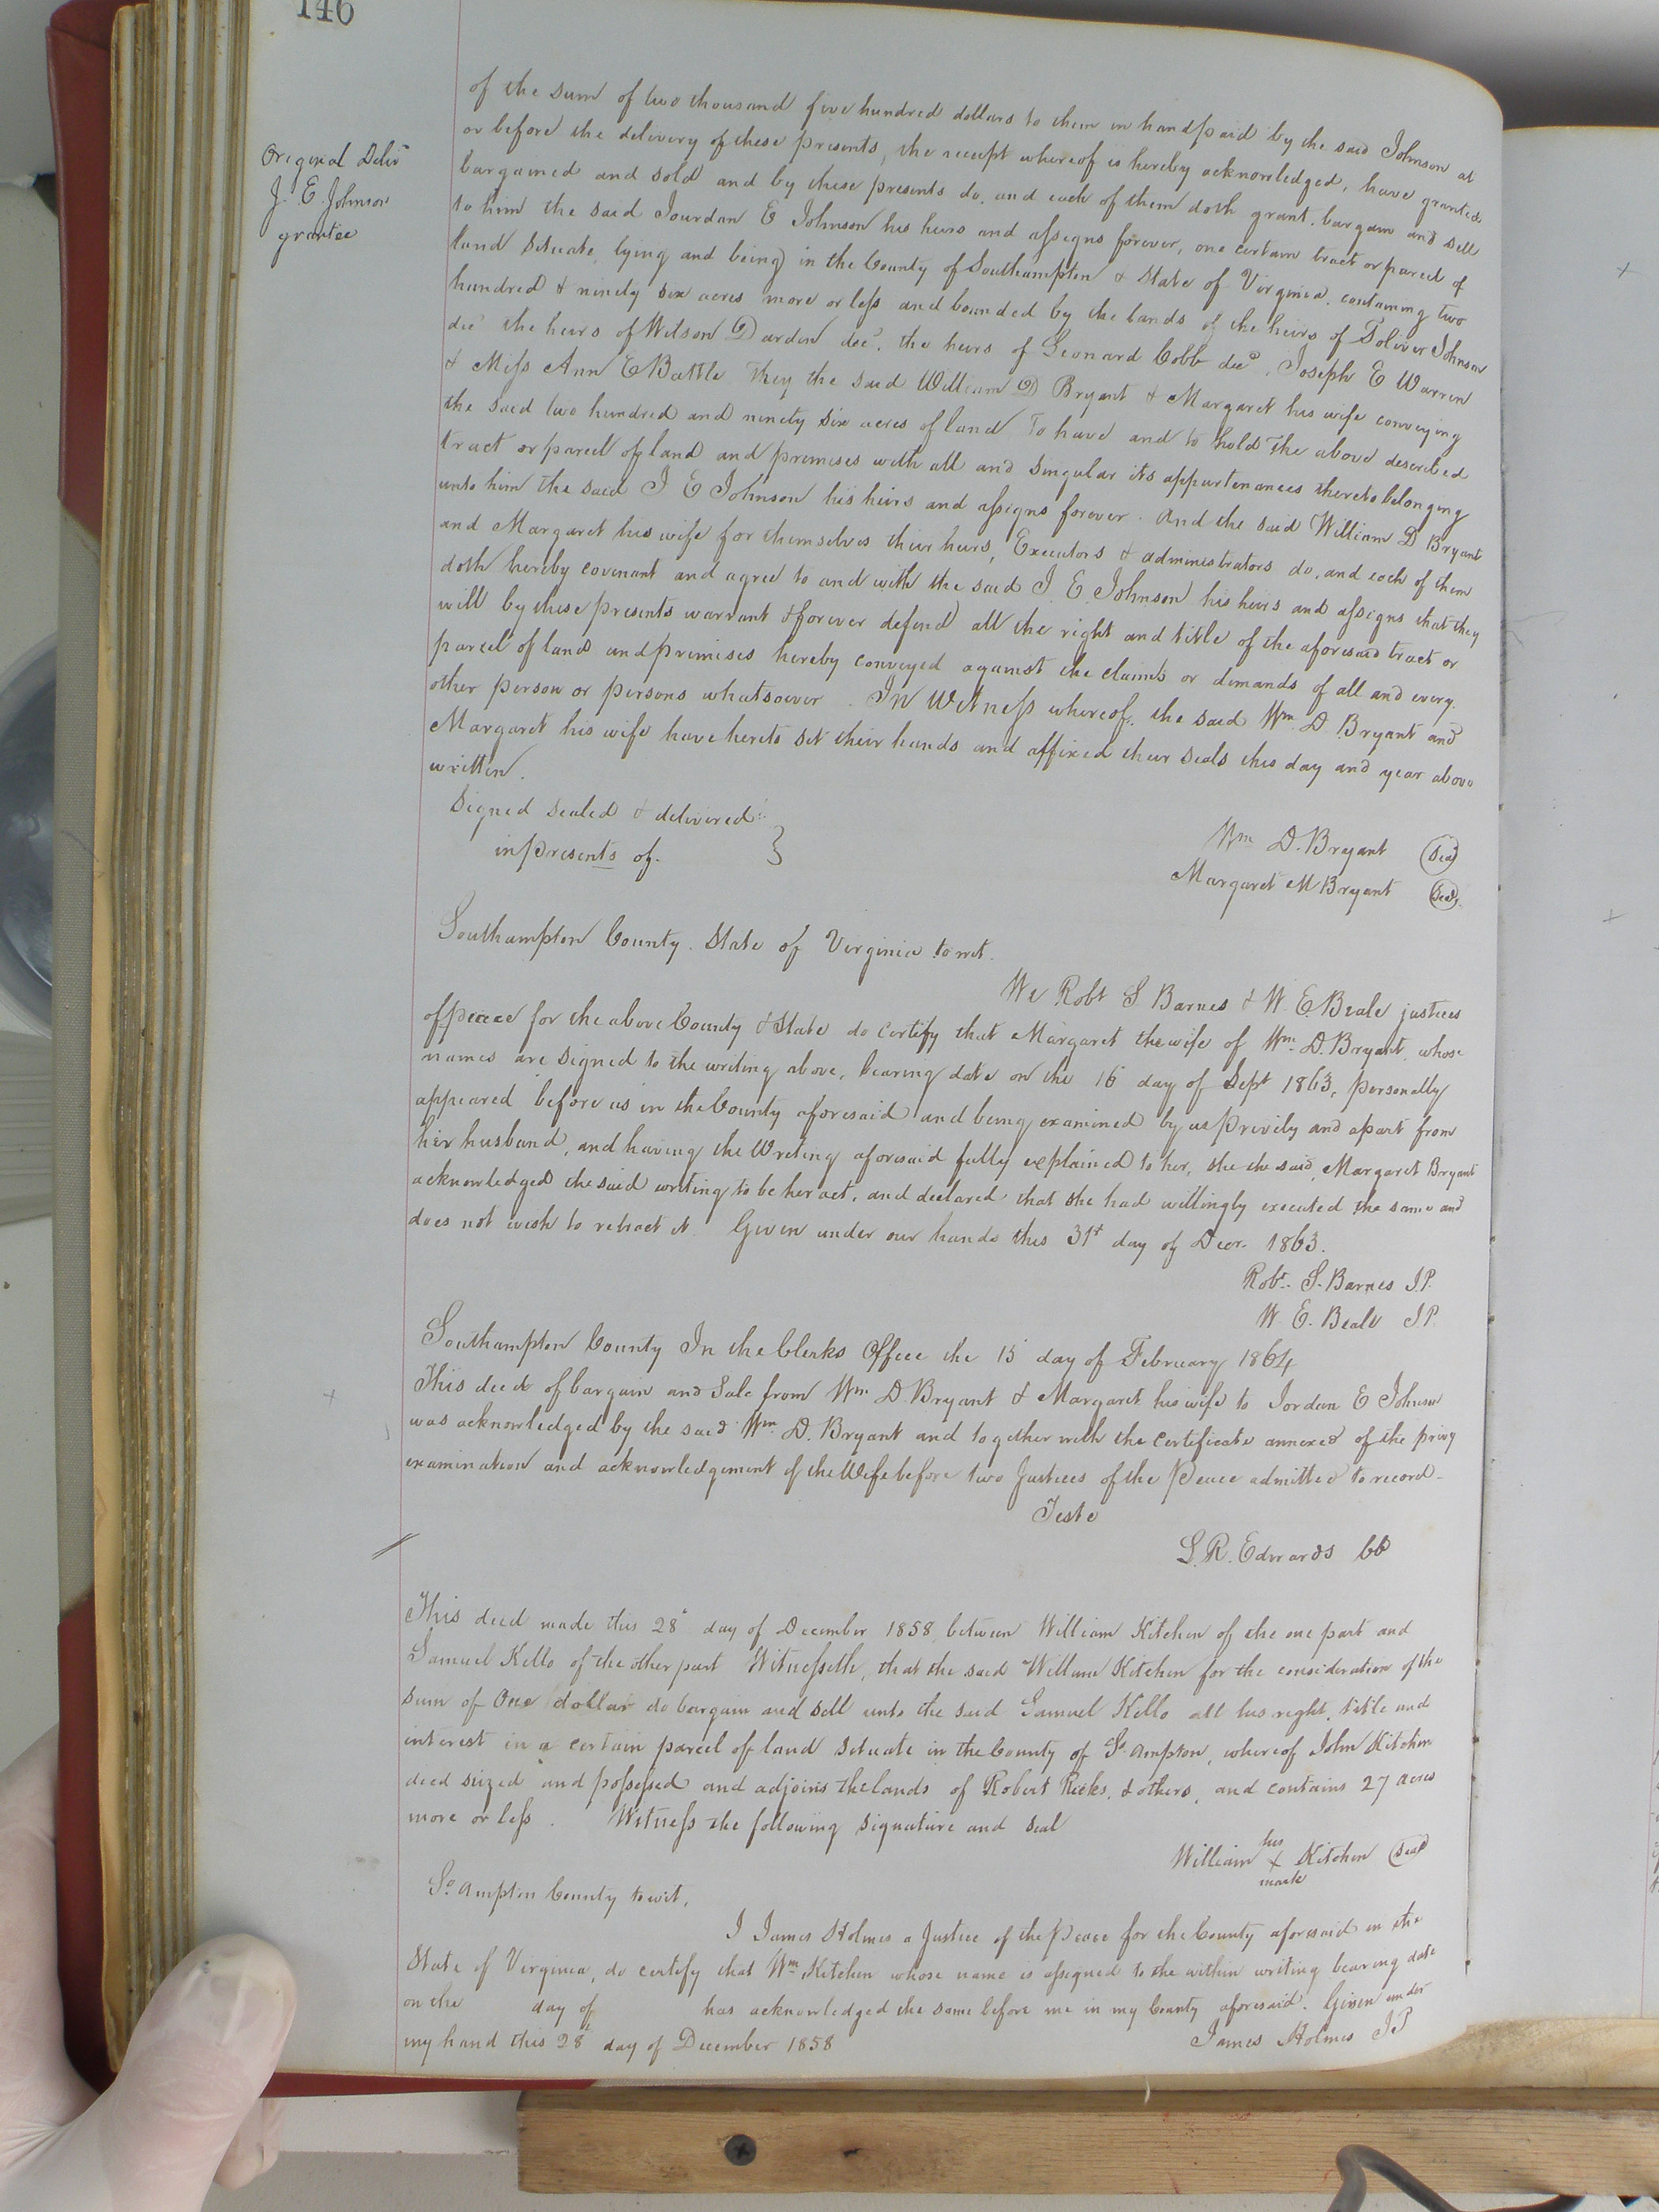 146
Original Delivd
J. E. Johnson
grantee
of the sum of two thousand five hundred dollars to them in hand paid by the said Johnson at
or before the delivery of these presents, the receipt whereof is hereby acknowledged, have granted
bargained and sold and by these presents do, and each of them doth grant, bargain and sell
to him the said Jourdan E Johnson his heirs and assigns forever, one certain tract or parcel of
land situate, lying and being in the County of Southampton & State of Virginia, containing two
hundred & ninety six acres more or less and bounded by the lands of the heirs of Toliver Johnson
decd the heirs of Wilson Darden decd, the heirs of Leonard Cobb decd, Joseph E Warren
& Miss Ann E Battle They the said William D Bryant & Margaret his wife conveying
the said two hundred and ninety six acres of land To have and to hold the above described
tract or parcel of land and premises with all and singular its appurtenances thereto belonging
unto him the said J E Johnson his heirs and assigns forever. And the said William D Bryant
and Margaret his wife for themselves their heirs, Executors & administrators do, and each of them
doth hereby covenant and agree to and with the said J. E. Johnson his heirs and assigns that they
will by these presents warrant & forever defend all the right and title of the aforesaid tract or
parcel of land and premises hereby conveyed against the claims or demands of all and every
other person or persons whatsoever. In Witness whereof, the said Wm. D. Bryant and
Margaret his wife have hereto set their hands and affixed their seals this day and year above
written.
Signed sealed & delivered
in presents of.
Wm D. Bryant (Seal)
Margaret M Bryant (Seal)
Southampton County. State of Virginia to wit.
We Robt S Barnes & W. E. Beale justices
of peace for the above County & State do certify that Margaret the wife of Wm. D. Bryant, whose
names are signed to the writing above, bearing date on the 16 day of Sept 1863, personally
appeared before us in the County aforesaid and being examined by us privily and apart from
her husband, and having the Writing aforesaid fully explained to her, she the said, Margaret Bryant
acknowledged the said writing to be her act, and declared that she had willingly executed the same and
does not wish to retract it. Given under our hands this 31st day of Decr. 1863.
Robt. S. Barnes J.P.
W. E. Beale J.P.
Southampton County In the Clerks Office the 15 day of February 1864
This deed of bargain and Sale from Wm D. Bryant & Margaret his wife to Jordan E Johnson
was acknowledged by the said Wm. D. Bryant and together with the certificate annexed of the privy
examination and acknowledgement of the Wife before two Justices of the Peace admitted to record-
Teste
L. R. Edwards CC
This deed made this 28 day of December 1858, between William Kitchen of the one part and
Samuel Kello of the other part Witnesseth, that the said William Kitchen for the consideration of the
sum of One dollar do bargain and sell unto the said Samuel Kello all his right, title and
interest in a certain parcel of land situate in the County of So. ampton, whereof John Kitchen
decd siezed and possessed and adjoins the lands of Robert Ricks, & others, and contains 27 acres
more or less. Witness the following signature and seal
his
William X Kitchen (Seal)
mark
So ampton County to wit,
I James Holmes a Justice of the Peace for the County aforesaid in the
State of Virginia, do certify that Wm. Kitchen whose name is assigned to the within writing bearing date
on the day of has acknowledged the same before me in my County aforesaid. Given under
my hand this 28 day of December 1858
James Holmes J P